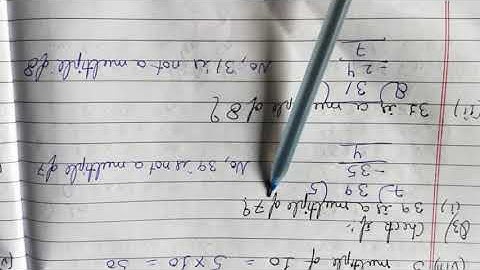 (viii) 5 multiple of 10 = 5 × 10 = 50
Q3) Check if :-
(i) 39 is a multiple of 7?
7) 39 (5
-35
4 No, 39 is not a multiple of 7
(ii) 31 is a multiple of 8?
8) 31 (
-24
7 No, 31 is not a multiple of 8